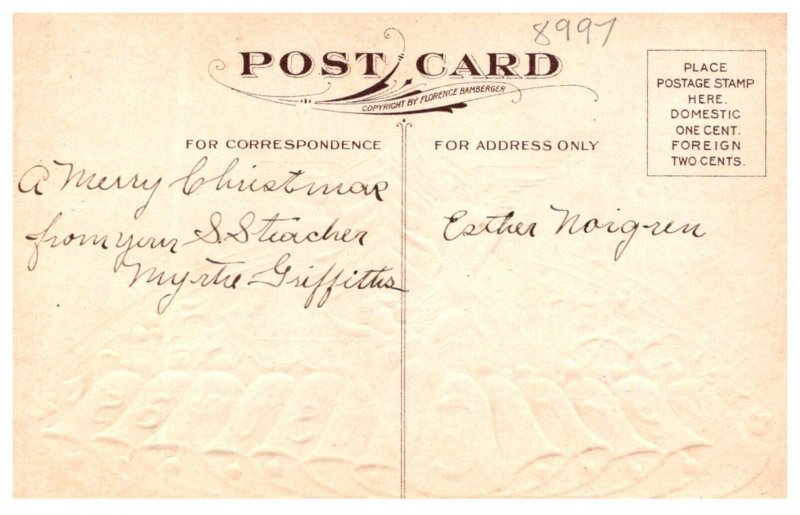 8997
POST CARD
COPYRIGHT BY FLORENCE BAMBERGER
PLACE
POSTAGE STAMP
HERE.
DOMESTIC
ONE CENT.
FOREIGN
TWO CENTS.
FOR CORRESPONDENCE
A Merry Christmas
from your S.S teacher
Myrtie Griffiths
FOR ADDRESS ONLY
Esther Norgren